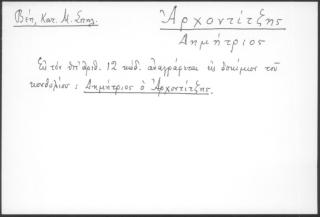 Βέη, Κατ. Μ. Σπηλ.
Ἀρχοντίτζης
Δημήτριος
Ἐν τῷ ὑπ' ἀριθ. 12 κώδ. ἀναγράφεται εἰς δοκίμιον τοῦ
κονδυλίου: Δημήτριος ὁ Ἀρχοντίτζης.